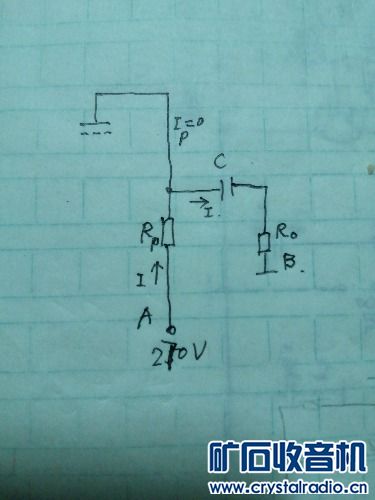 I=0
P
C
I
Rp
R0
B.
I
A
矿石收音机
www.crystalradio.cn